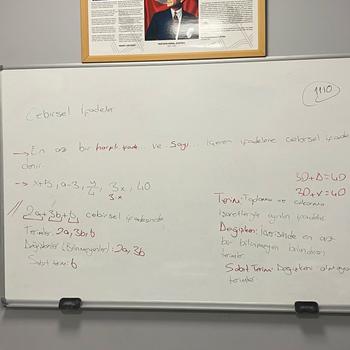 1110
Cebirsel ifadeler
→ En az bir harf ve sayı içeren ifadelere cebirsel ifade
denir.
→ x+5, a-3, y/4, 3x, 40
3·x
30+Δ=40
30+x=40
// 2a+3b+6 cebirsel ifadesinde
Terimler: 2a, 3b, 6
Değişkenler (Bilinmeyenler): 2a, 3b
Sabit terim: 6
Terim: Toplama ve çıkarma
işaretleriyle ayrılan ifadeler
Değişken: İçerisinde en az
bir bilinmeyen bulunduran
terimler
Sabit Terim: Değişkeni olmayan
terimler